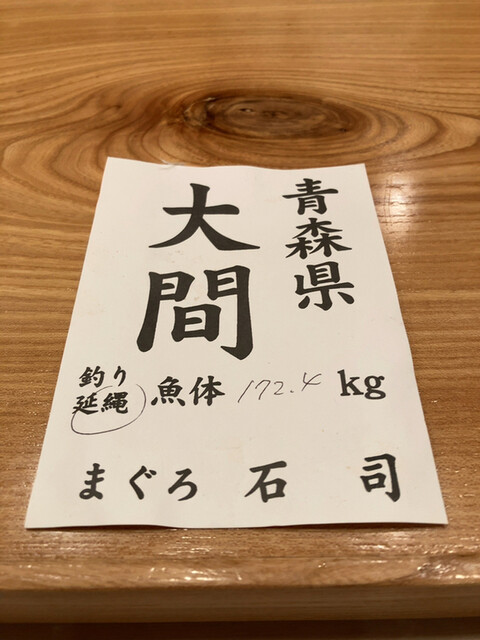 青森県
大間
釣り
延縄 魚体 172.4 kg
まぐろ 石司